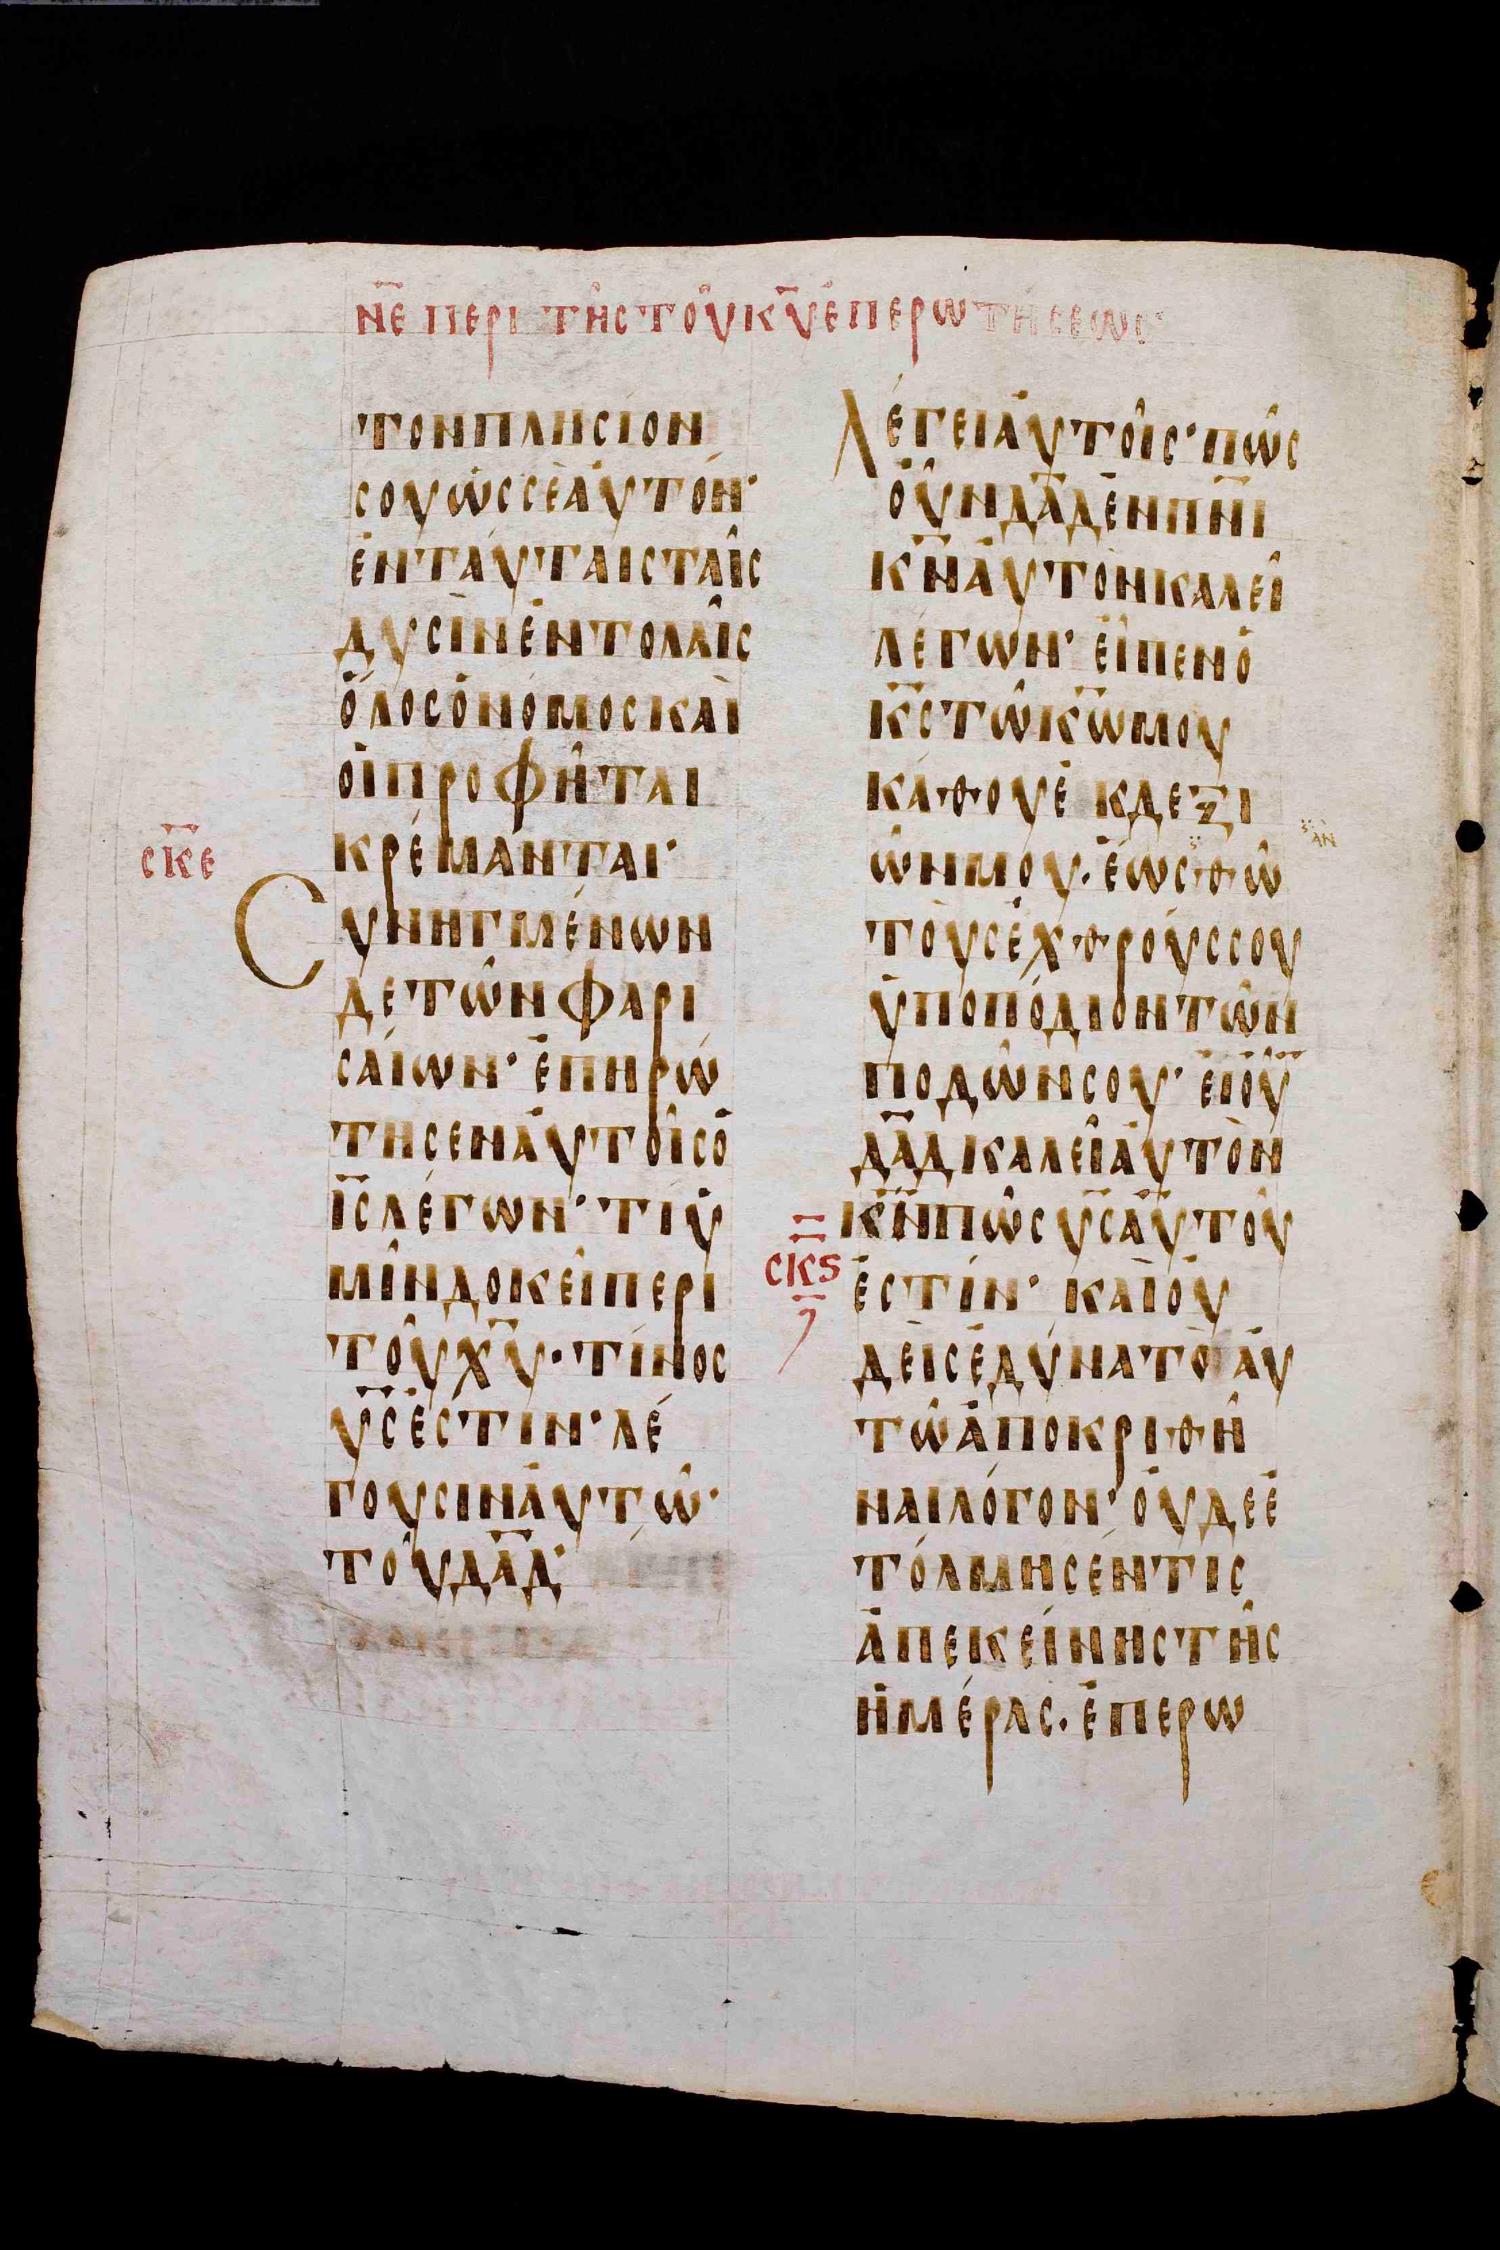 Ν̅Ε̅ ΠΕΡΙ ΤΗ͂Ϲ ΤΟΥ͂ Κ̅Υ̅ ἘΠΕΡΩΤΗϹΕΩϹ
ΤΟΝΠΛΗϹΙΌΝ
ϹΟΥὩϹϹΕἈΥΤΌΝ·
ἘΝΤΑΎΤΑΙϹΤΑΙ͂Ϲ
ΔΥϹῚΝἘΝΤΟΛΑΙ͂Ϲ
ὍΛΟϹὉΝΌΜΟϹΚΑῚ
ΟἹΠΡΟΦΗ͂ΤΑΙ
ΚΡΈΜΑΝΤΑΙ·
Ϲ̅Κ̅Ε̅
ϹΥΝΗΓΜΈΝΩΝ
ΔΕΤΩ͂ΝΦΑΡΙ
ϹΑΊΩΝ· ἘΠΗΡΏ
ΤΗϹΕΝἈΥΤΟΙ͂ϹὉ
Ι̅Ϲ̅ΛΈΓΩΝ· ΤΊὙ
ΜΙ͂ΝΔΟΚΕΙ͂ΠΕΡΙ
ΤΟΥ͂Χ̅Υ̅· ΤΊΝΟϹ
Υ̅Ϲ̅ἘϹΤΙΝ· ΛΈ
ΓΟΥϹΙΝἈΥΤΩ͂·
ΤΟΥ͂Δ̅Α̅Δ̅·
ΛΈΓΕΙἈΥΤΟΙ͂Ϲ· ΠΩ͂Ϲ
ΟΥ͂̓ΝΔ̅Α̅Δ̅ἘΝΠ̅Ν̅Ι̅
Κ̅Ν̅ἈΥΤῸΝΚΑΛΕΙ͂
ΛΈΓΩΝ· ΕἾΠΕΝὉ
Κ̅Ϲ̅ΤΩ͂Κ̅Ω̅ΜΟΥ
ΚΆΘΟΥἘΚΔΕΞΙ
ΩΝΜΟΥ· ἝΩϹΘΩ͂
ΤΟῪϹἘΧΘΡΟΎϹϹΟΥ
ὙΠΟΠΌΔΙΟΝΤΩ͂Ν
ΠΟΔΩ͂ΝϹΟΥ· ΕἸΟΥ̓͂
Δ̅Α̅Δ̅ΚΑΛΕΙ͂ἈΥΤῸΝ
Κ̅Ν̅ΠΩ͂ϹΥ̅Ϲ̅ἈΥΤΟΥ͂
Ϲ̅Κ̅Ϛ̅
ἘϹΤΊΝ· ΚΑῚΟΥ̓
ΔΕῚϹἘΔΎΝΑΤΟ ἈΥ
ΤΩ͂ἈΠΟΚΡΙΘΗ͂
ΝΑΙΛΌΓΟΝ· ΟΥ̓ΔΕἘ
ΤΌΛΜΗϹΈΝΤΙϹ
ἈΠΕΚΕΊΝΗϹΤΗ͂Ϲ
ἩΜΈΡΑϹ· ἘΠΕΡΩ